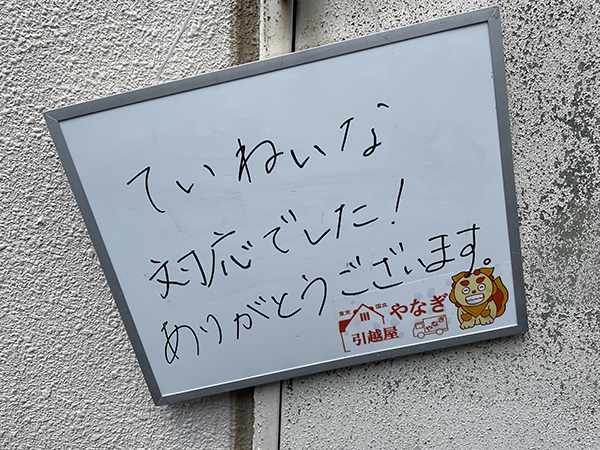 ていねいな
対応でした!
ありがとうございます。
東京 国立 やなぎ
引越屋
やなぎ